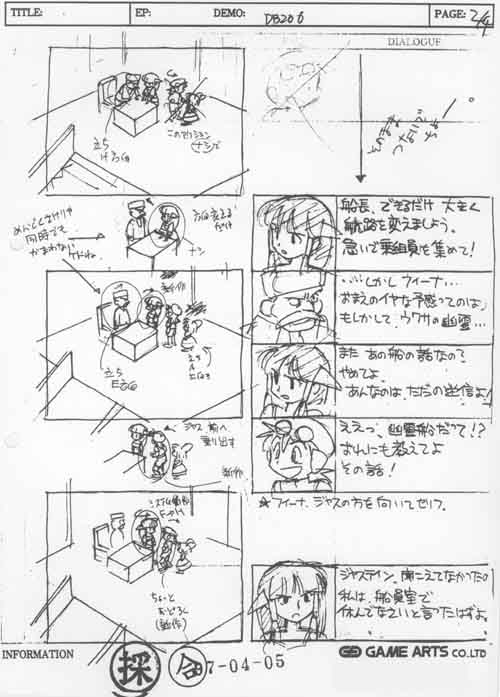 TITLE: EP: DEMO: DB206 PAGE: 2/4
DIALOGUE
立ち
このアクション
ナシで
船長、できるだけ 大きく
航路を変えましょう。
急いで乗組員を集めて!
方向変える
だけ
ナシ
めんどくさけりゃ
同時でも
かまわない
けどね。
…しかしフィーナ…
おまえのイヤな予感ってのは、
もしかして、ウワサの幽霊…
新作
立ち
また あの船の話なの?
やめてよ。
あんなのは、ただの迷信よ!
ジャス 前へ
乗り出す
新作
ええっ、幽霊船だって!?
おれにも教えてよ
その話!
★フィーナ、ジャスの方を向いてセリフ。
ちょっと
おどろく
(新作)
ジャスティン、聞こえてなかったの?
私は、船員室で
休んでなさいと言ったはずよ。
INFORMATION
採 合 7-04-05
GAME ARTS CO.,LTD